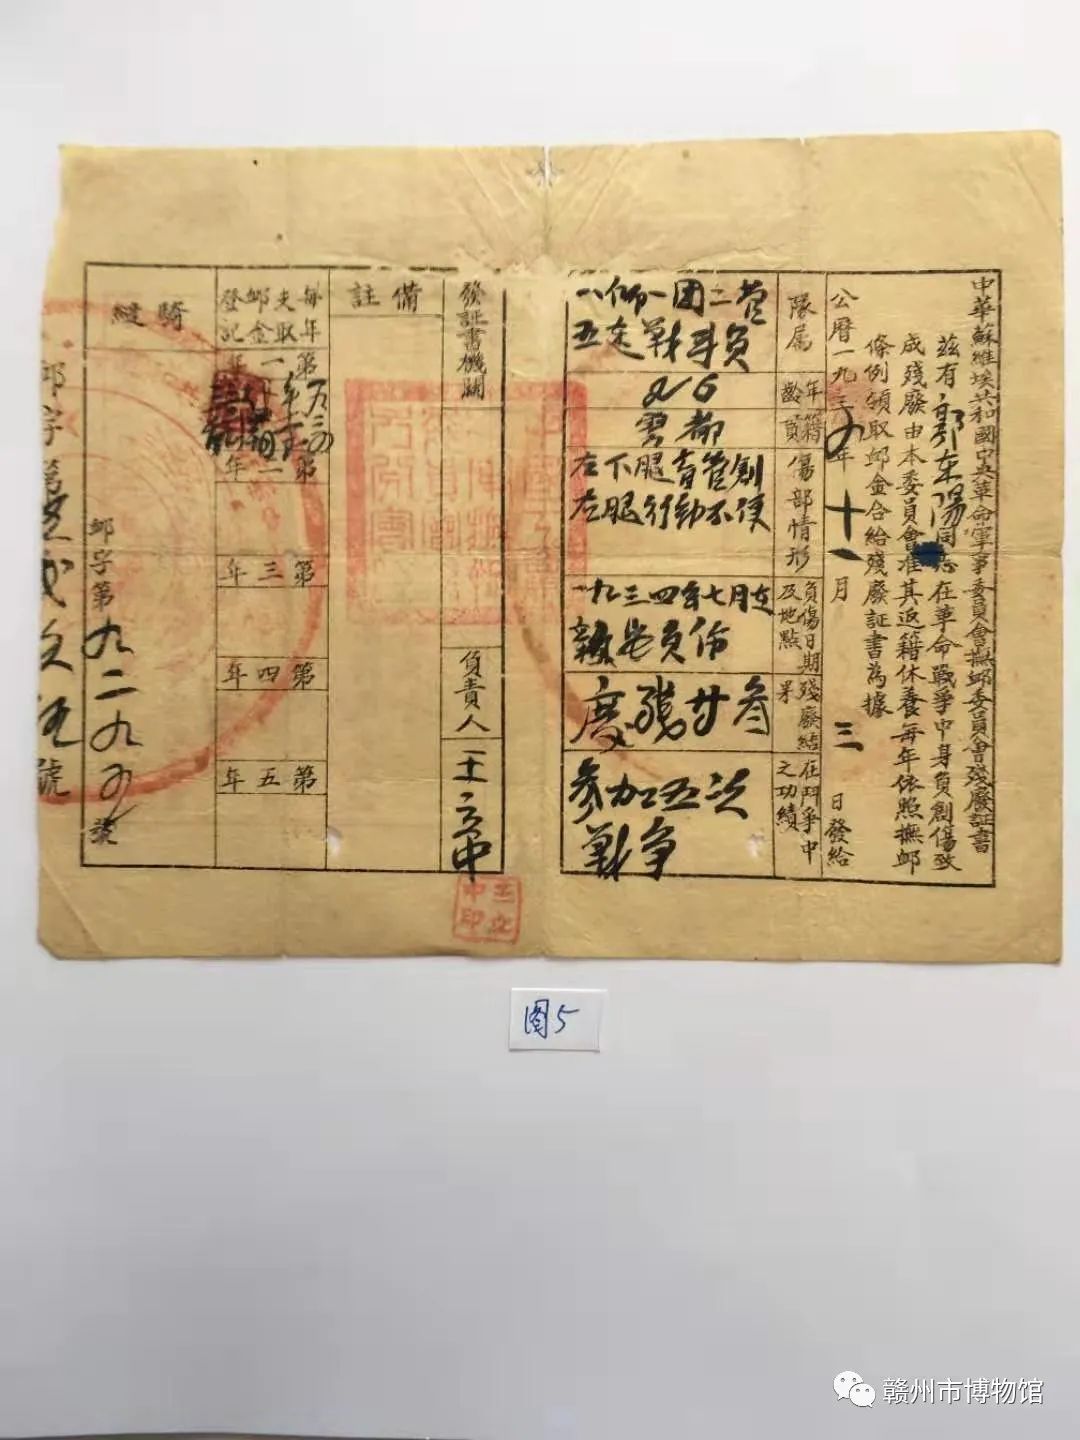 中華蘇維埃共和國中央革命軍事委員會撫卹委員會殘廢証書
茲有郭东陽同志在革命戰爭中身負創傷致
成殘廢由本委員會准其返籍休養每年依照撫卹
條例領取卹金合給殘廢証書為據
公曆一九三四年十一月三日發給
隊属
八师一团二营
五连戰斗員
年齡
26
籍貫
雩都
傷部情形
左下腿骨管創
左腿行動不便
負傷日期及地點
一九三四年七月在
負伤
殘廢結果
在鬥爭中之功績
参加五次
戰争
發証書機關
負責人
王立中
王立中印
備註
每年支取卹金登記
第一年
第二年
第三年
第四年
第五年
騎縫
卹字第九二九四號
图5
赣州市博物馆